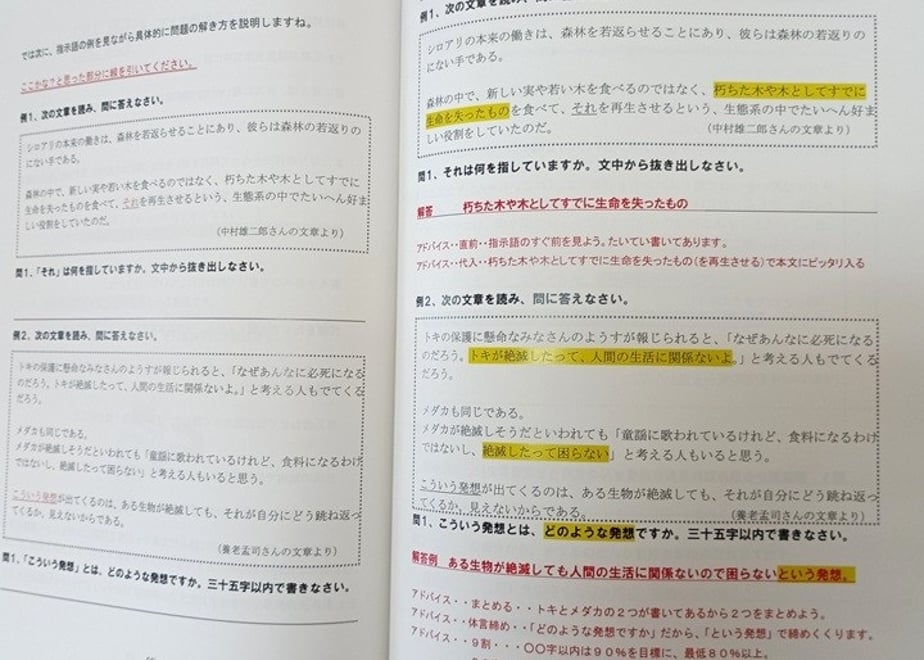 では次に、指示語の例を見ながら具体的に問題の解き方を説明しますね。
ここかな？と思った部分に線を引いてください。
例1、次の文章を読み、問に答えなさい。
シロアリの本来の働きは、森林を若返らせることにあり、彼らは森林の若返りの
にない手である。
森林の中で、新しい実や若い木を食べるのではなく、朽ちた木や木としてすでに
生命を失ったものを食べて、それを再生させるという、生態系の中でたいへん好ま
しい役割をしていたのだ。
（中村雄二郎さんの文章より）
問1、「それ」は何を指していますか。文中から抜き出しなさい。
例2、次の文章を読み、問に答えなさい。
トキの保護に懸命なみなさんのようすが報じられると、「なぜあんなに必死になる
のだろう。トキが絶滅したって、人間の生活に関係ないよ。」と考える人もでてくる
だろう。
メダカも同じである。
メダカが絶滅しそうだといわれても「童謡に歌われているけれど、食料になるわけ
ではないし、絶滅したって困らない」と考える人もいると思う。
こういう発想が出てくるのは、ある生物が絶滅しても、それが自分にどう跳ね返っ
てくるか、見えないからである。
（養老孟司さんの文章より）
問1、「こういう発想」とは、どのような発想ですか。三十五字以内で書きなさい。
例1、次の文章を読み、問に答えなさい。
シロアリの本来の働きは、森林を若返らせることにあり、彼らは森林の若返りの
にない手である。
森林の中で、新しい実や若い木を食べるのではなく、朽ちた木や木としてすでに
生命を失ったものを食べて、それを再生させるという、生態系の中でたいへん好ま
しい役割をしていたのだ。
（中村雄二郎さんの文章より）
問1、それは何を指していますか。文中から抜き出しなさい。
解答 朽ちた木や木としてすでに生命を失ったもの
アドバイス・・直前・・指示語のすぐ前を見よう。たいてい書いてあります。
アドバイス・・代入・・朽ちた木や木としてすでに生命を失ったもの（を再生させる）で本文にピッタリ入る
例2、次の文章を読み、問に答えなさい。
トキの保護に懸命なみなさんのようすが報じられると、「なぜあんなに必死になる
のだろう。トキが絶滅したって、人間の生活に関係ないよ。」と考える人もでてくる
だろう。
メダカも同じである。
メダカが絶滅しそうだといわれても「童謡に歌われているけれど、食料になるわけ
ではないし、絶滅したって困らない」と考える人もいると思う。
こういう発想が出てくるのは、ある生物が絶滅しても、それが自分にどう跳ね返っ
てくるか、見えないからである。
（養老孟司さんの文章より）
問1、こういう発想とは、どのような発想ですか。三十五字以内で書きなさい。
解答例 ある生物が絶滅しても人間の生活に関係ないので困らないという発想。
アドバイス・・まとめる・・トキとメダカの2つが書いてあるから2つをまとめよう。
アドバイス・・体言締め・・「どのような発想ですか」だから、「という発想」で締めくくります。
アドバイス・・9割・・・〇〇字以内は90％を目標に、最低80％以上。